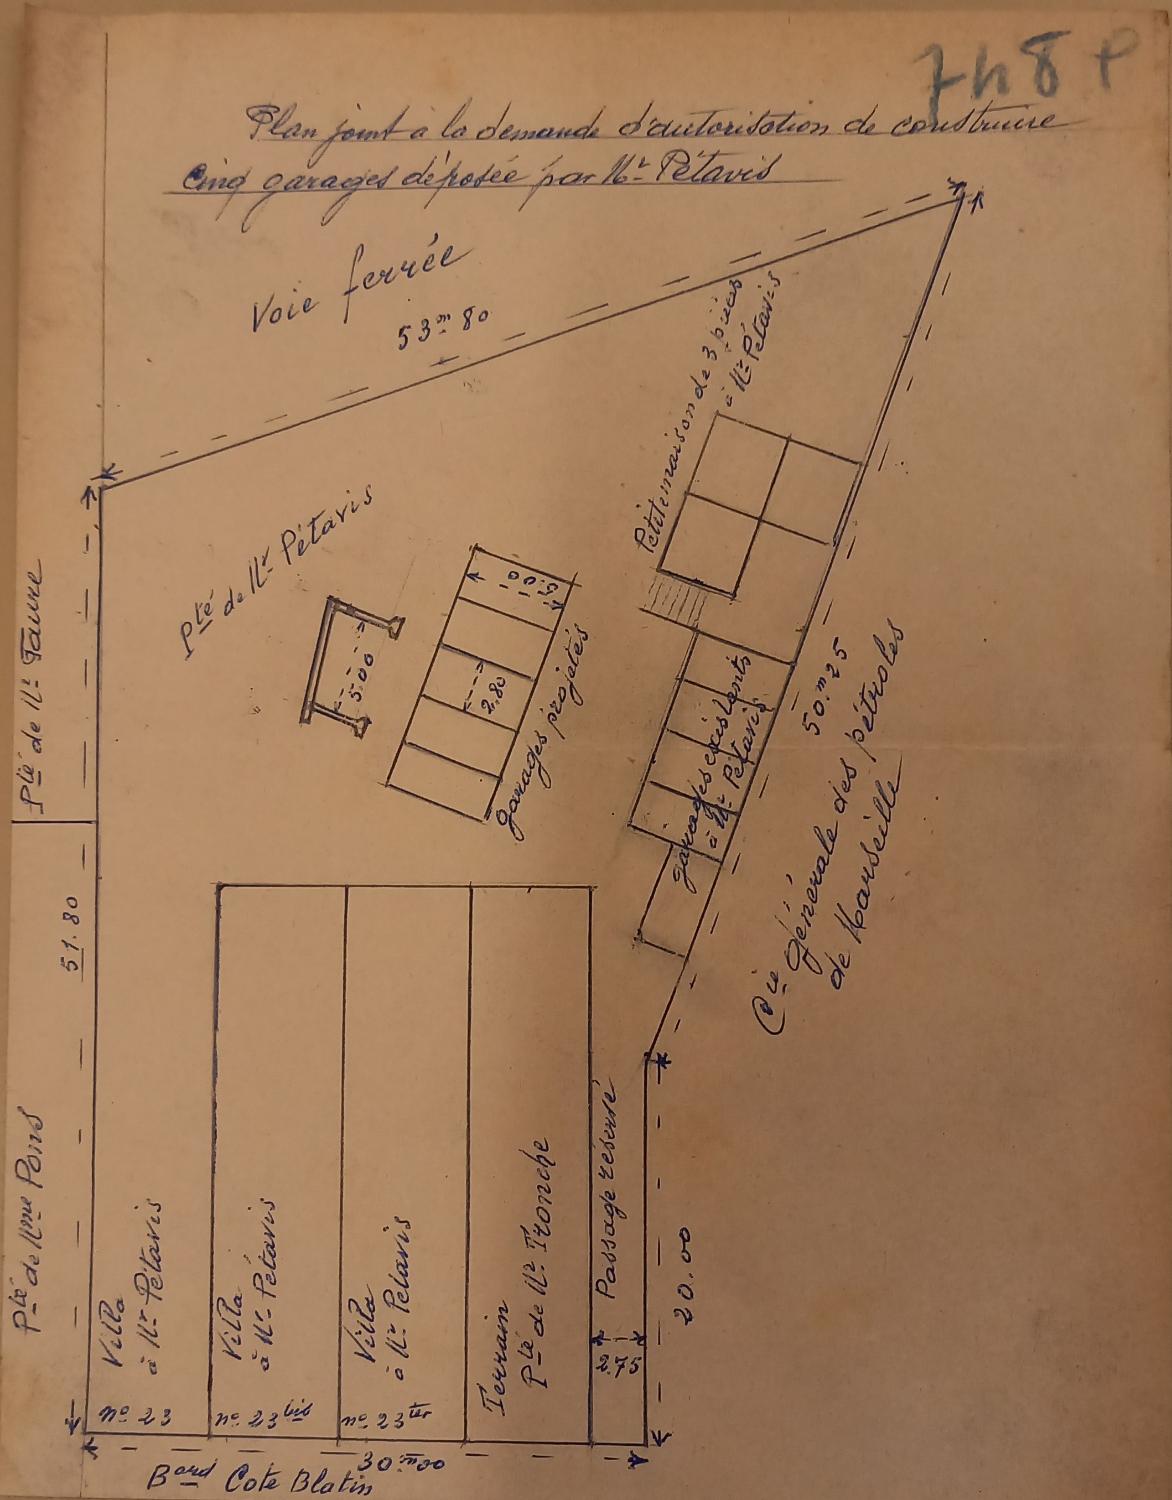 748 P
Plan joint à la demande d'autorisation de construire
cinq garages déposée par Mr Pétavis
Voie ferrée
53m 80
Petite maison de 3 pièces
à Mr Pétavis
Pté de Mr Pétavis
5.00
2.80
garages projetés
garages existants
à Mr Pétavis
50.m25
Cie générale des pétroles
de Marseille
Pté de Mr Favre
51.80
Pté de Mme Pons
Villa
à Mr Pétavis
no 23
Villa
à Mr Pétavis
no 23 bis
Villa
à Mr Pétavis
no 23 ter
Terrain
Pté de Mr Tronche
Passage réservé
20.00
30m00
Bard Cote Blatin